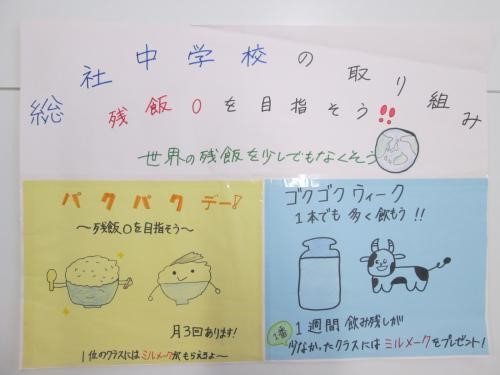 総社中学校の取り組み
残飯0を目指そう!!
世界の残飯を少しでもなくそう
パクパクデー!
〜残飯0を目指そう〜
月3回あります!
1位のクラスにはミルメークがもらえるよ〜
ゴクゴクウィーク
1本でも多く飲もう!!
1番
1週間飲み残しが
少なかったクラスにはミルメークをプレゼント!